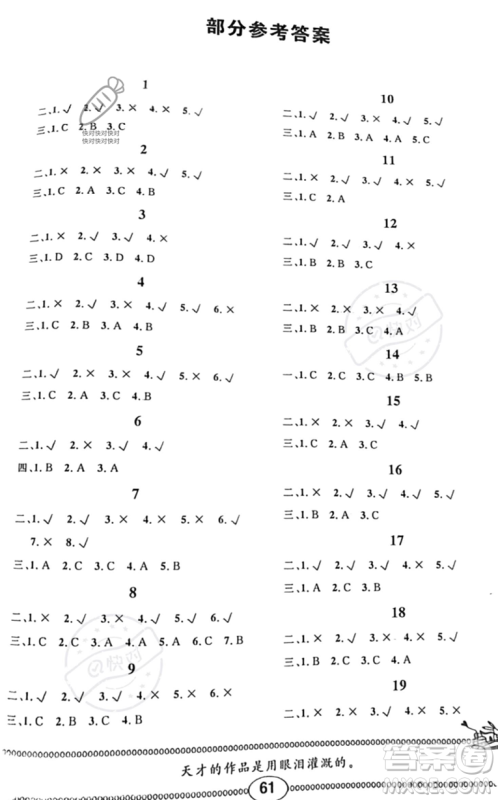 部分参考答案
1
二、1.√ 2.√ 3.× 4.× 5.√
三、1.C 2.B 3.C
快对快对快对
快对快对快对
2
二、1.× 2.× 3.√ 4.× 5.√
三、1.C 2.A 3.C 4.B
3
二、1.× 2.√ 3.√ 4.×
三、1.D 2.D 3.C 4.D
4
二、1.√ 2.√ 3.× 4.√ 5.√ 6.×
三、1.C 2.B 3.C 4.B
5
二、1.√ 2.√ 3.× 4.× 5.× 6.√
三、1.C 2.A 3.C 4.B
6
二、1.√ 2.× 3.√ 4.√
四、1.B 2.A 3.A
7
二、1.√ 2.√ 3.× 4.× 5.× 6.√
7.× 8.√
三、1.A 2.C 3.C 4.A 5.B
8
二、1.× 2.√ 3.× 4.√ 5.√ 6.√
三、1.A 2.C 3.A 4.B 5.C 6.C 7.B
9
二、1.× 2.√ 3.× 4.× 5.√ 6.√
三、1.C 2.A 3.B 4.C 5.B
10
二、1.√ 2.√ 3.× 4.× 5.√
三、1.A 2.B 3.C 4.A 5.A
11
二、1.× 2.√ 3.× 4.√ 5.√
三、1.C 2.A
12
二、1.× 2.√ 3.× 4.√
三、1.B 2.C 3.B
13
二、1.× 2.√ 3.× 4.√ 5.√
三、1.B 2.B 3.C 4.A
14
一、1.C 2.B 3.C 4.B 5.B
15
二、1.√ 2.× 3.√ 4.√
三、1.B 2.B 3.A
16
二、1.× 2.× 3.√ 4.× 5.√
三、1.B 2.C 3.B
17
二、1.√ 2.√ 3.√ 4.× 5.×
三、1.B 2.A 3.C 4.B
18
二、1.√ 2.√ 3.√ 4.× 5.√
三、1.B 2.C 3.C 4.A
19
二、1.× 2.√ 3.× 4.√
天才的作品是用眼泪灌溉的。
61
快对
快对
答案圈
MXQE.COM